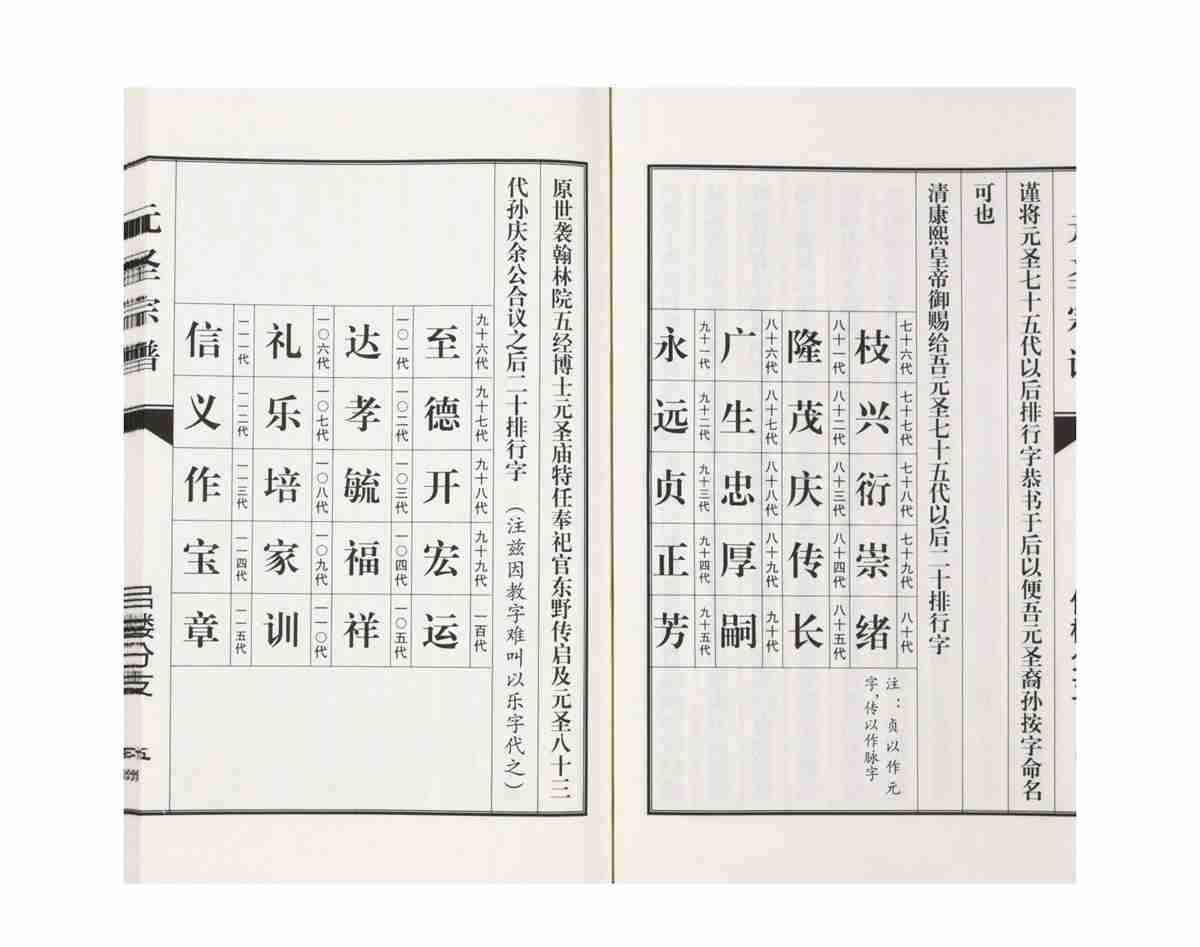 谨将元圣七十五代以后排行字恭书于后以便吾元圣裔孙按字命名
可也
清康熙皇帝御赐给吾元圣七十五代以后二十排行字
七十六代 七十七代 七十八代 七十九代 八十代
枝 兴 衍 崇 绪
八十一代 八十二代 八十三代 八十四代 八十五代
隆 茂 庆 传 长
八十六代 八十七代 八十八代 八十九代 九十代
广 生 忠 厚 嗣
九十一代 九十二代 九十三代 九十四代 九十五代
永 远 贞 正 芳
注：贞以作元
字，传以作脉字
原世袭翰林院五经博士元圣庙特任奉祀官东野传启及元圣八十三
代孙庆余公合议之后二十排行字（注兹因教字难叫以乐字代之）
九十六代 九十七代 九十八代 九十九代 一百代
至 德 开 宏 运
一〇一代 一〇二代 一〇三代 一〇四代 一〇五代
达 孝 毓 福 祥
一〇六代 一〇七代 一〇八代 一〇九代 一一〇代
礼 乐 培 家 训
一一一代 一一二代 一一三代 一一四代 一一五代
信 义 作 宝 章
元圣宗谱